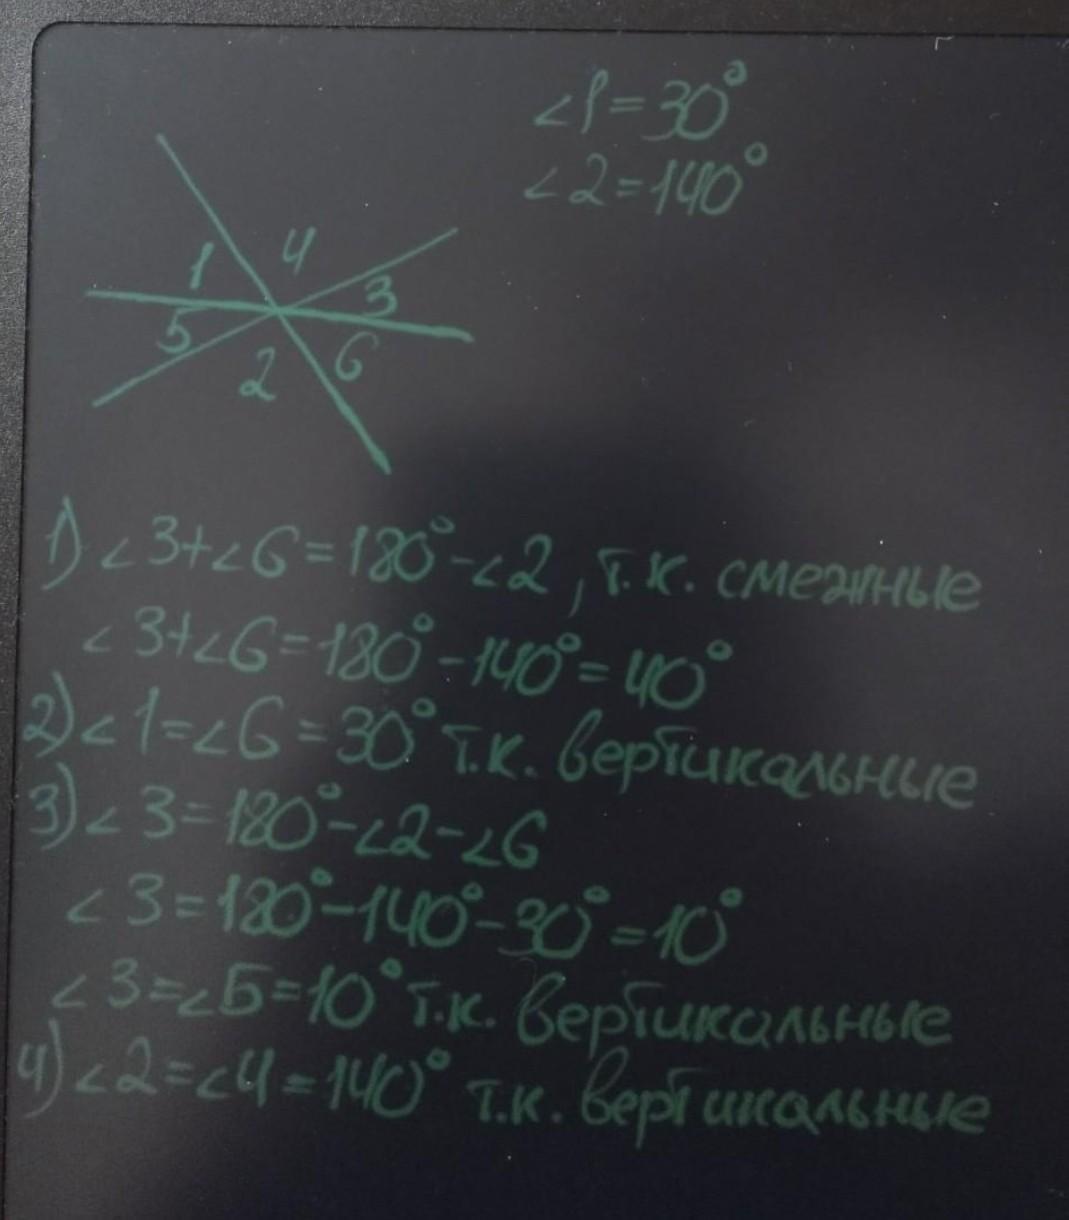 ∠1=30°
∠2=140°
4
1
3
5
6
2
1) ∠3+∠6=180°-∠2, т.к. смежные
∠3+∠6=180°-140°=40°
2) ∠1=∠6=30° т.к. вертикальные
3) ∠3=180°-∠2-∠6
∠3=180°-140°-30°=10°
∠3=∠5=10° т.к. вертикальные
4) ∠2=∠4=140° т.к. вертикальные